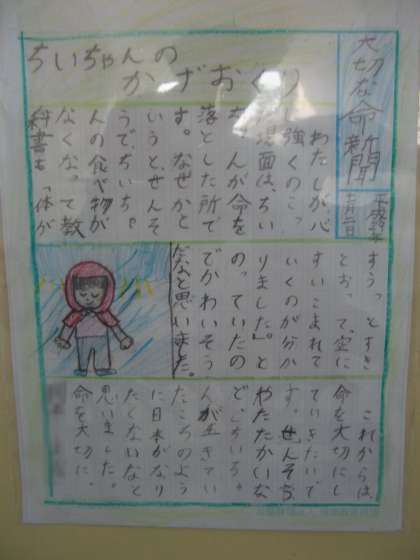 大切な命新聞
ちいちゃんの
かげおくり
わたしが心
に強くのこっ
た場面は、ちい
ちゃんが命を
落とした所で
す。なぜかと
いうと、せんそ
うで、ちいちゃ
んの食べ物が
なくなって教
科書も「体が
すうっとすき
とおって、空に
すいこまれて
いくのが分か
りました。」と
のっていたの
でかわいそう
だなと思いました。
これからは、
命を大切にし
ていきたいで
す。せんそう
やたたかいな
んが生きてい
たころのよう
に日本がなり
たくないなと
思いました。
命を大切に。